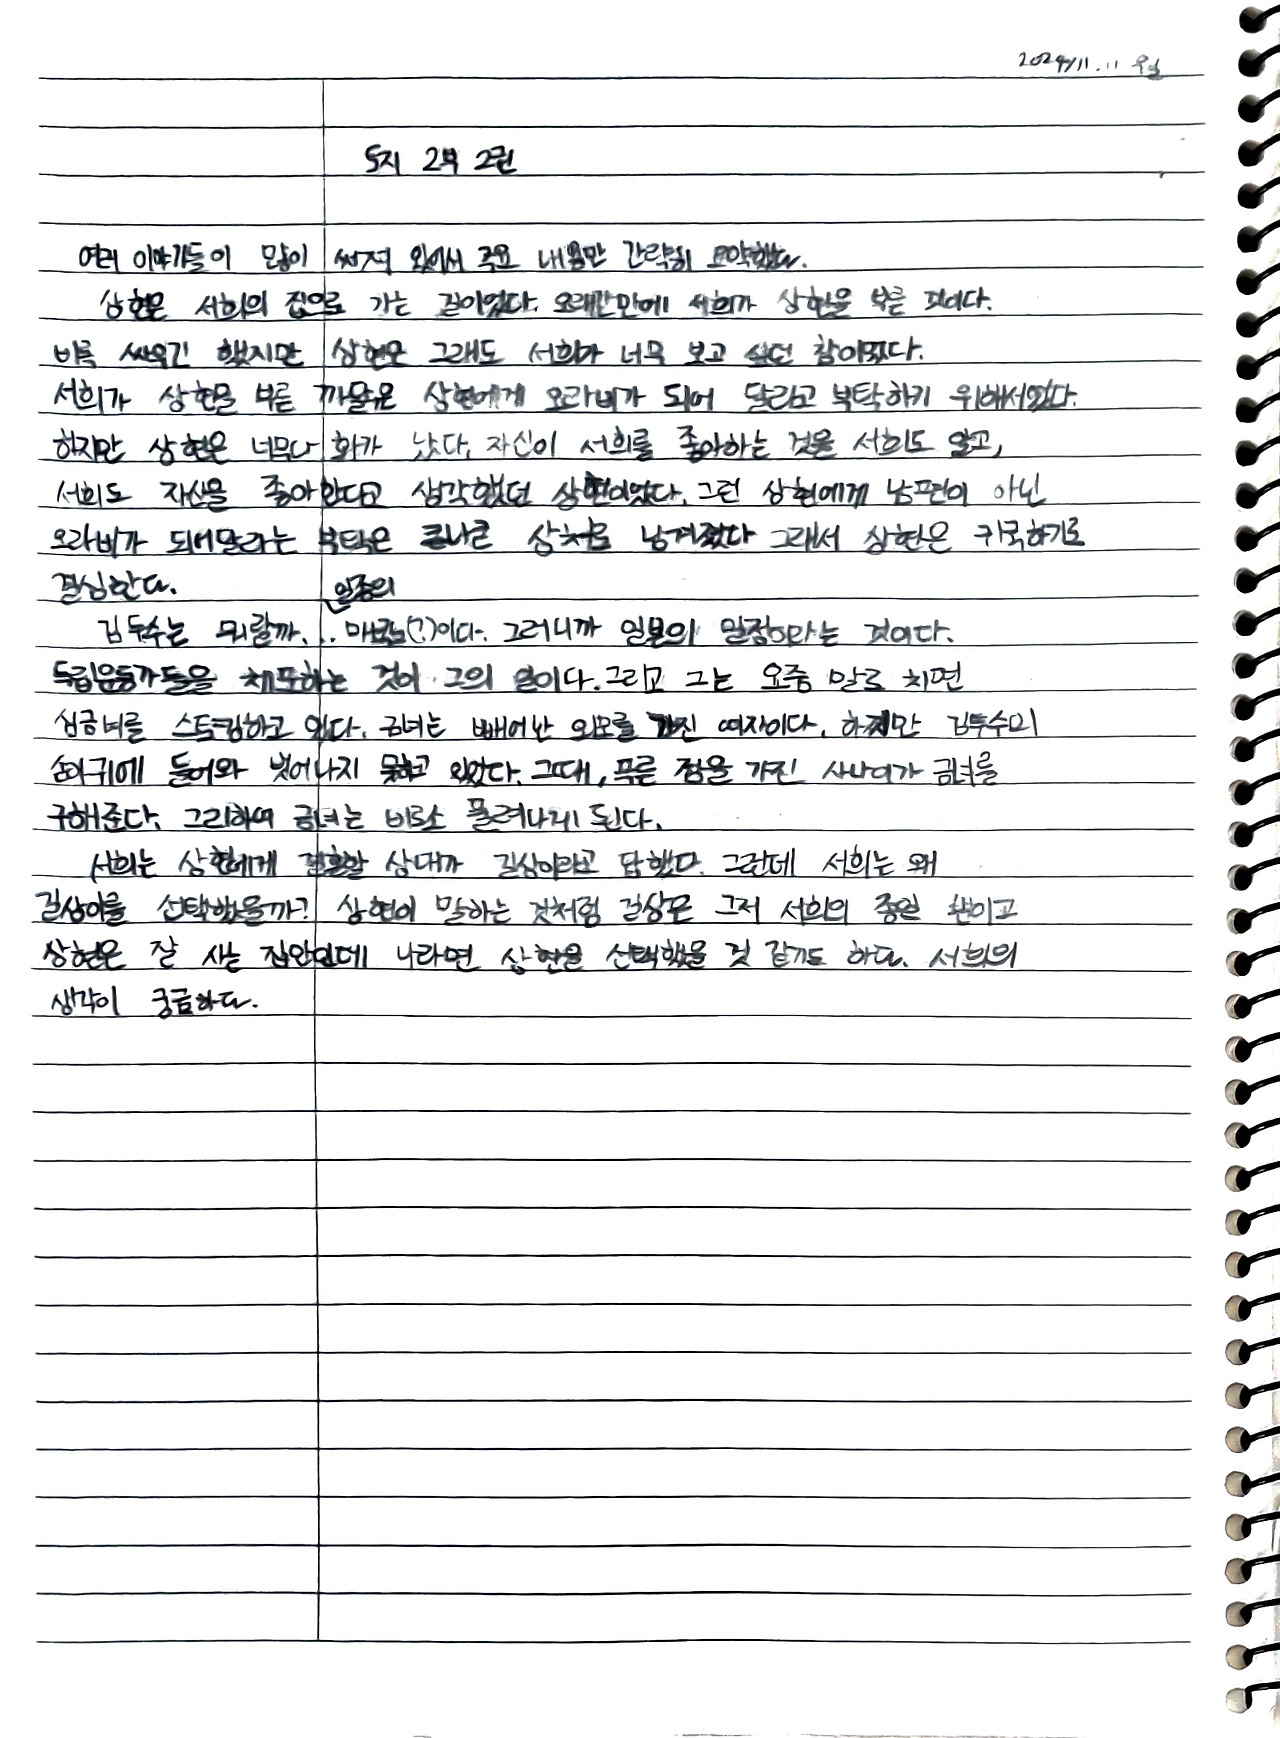 2024/11.11 월
토지 2부 2권
여러 이야기들이 많이 써져 있어서 주요 내용만 간략히 요약했다.
상현은 서희의 집으로 가는 길이었다. 오래간만에 서희가 상현을 부른 것이다.
비록 싸우긴 했지만 상현은 그래도 서희가 너무 보고 싶던 참이었다.
서희가 상현을 부른 까닭은 상현에게 오라비가 되어 달라고 부탁하기 위해서였다.
하지만 상현은 너무나 화가 났다. 자신이 서희를 좋아하는 것을 서희도 알고,
서희도 자신을 좋아한다고 생각했던 상현이었다. 그런 상현에게 남편이 아닌
오라비가 되어달라는 부탁은 크나큰 상처를 남겨줬다 그래서 상현은 귀국하기로
결심한다.
일종의
김두수는 뭐랄까... 매국노(?)이다. 그러니까 일본의 밀정이라는 것이다.
독립운동가들을 체포하는 것이 그의 일이다. 그리고 그는 요즘 말로 치면
심금녀를 스토킹하고 있다. 금녀는 빼어난 외모를 가진 여자이다. 하지만 김두수의
손아귀에 들어와 벗어나지 못하고 있었다. 그때, 푸른 점을 가진 사나이가 금녀를
구해준다. 그리하여 금녀는 비로소 풀려나게 된다.
서희는 상현에게 결혼할 상대가 길상이라고 답했다. 그런데 서희는 왜
길상이를 선택했을까? 상현이 말하는 것처럼 길상은 그저 서희의 종일 뿐이고
상현은 잘 사는 집안인데 나라면 상현을 선택했을 것 같기도 하다. 서희의
생각이 궁금하다.